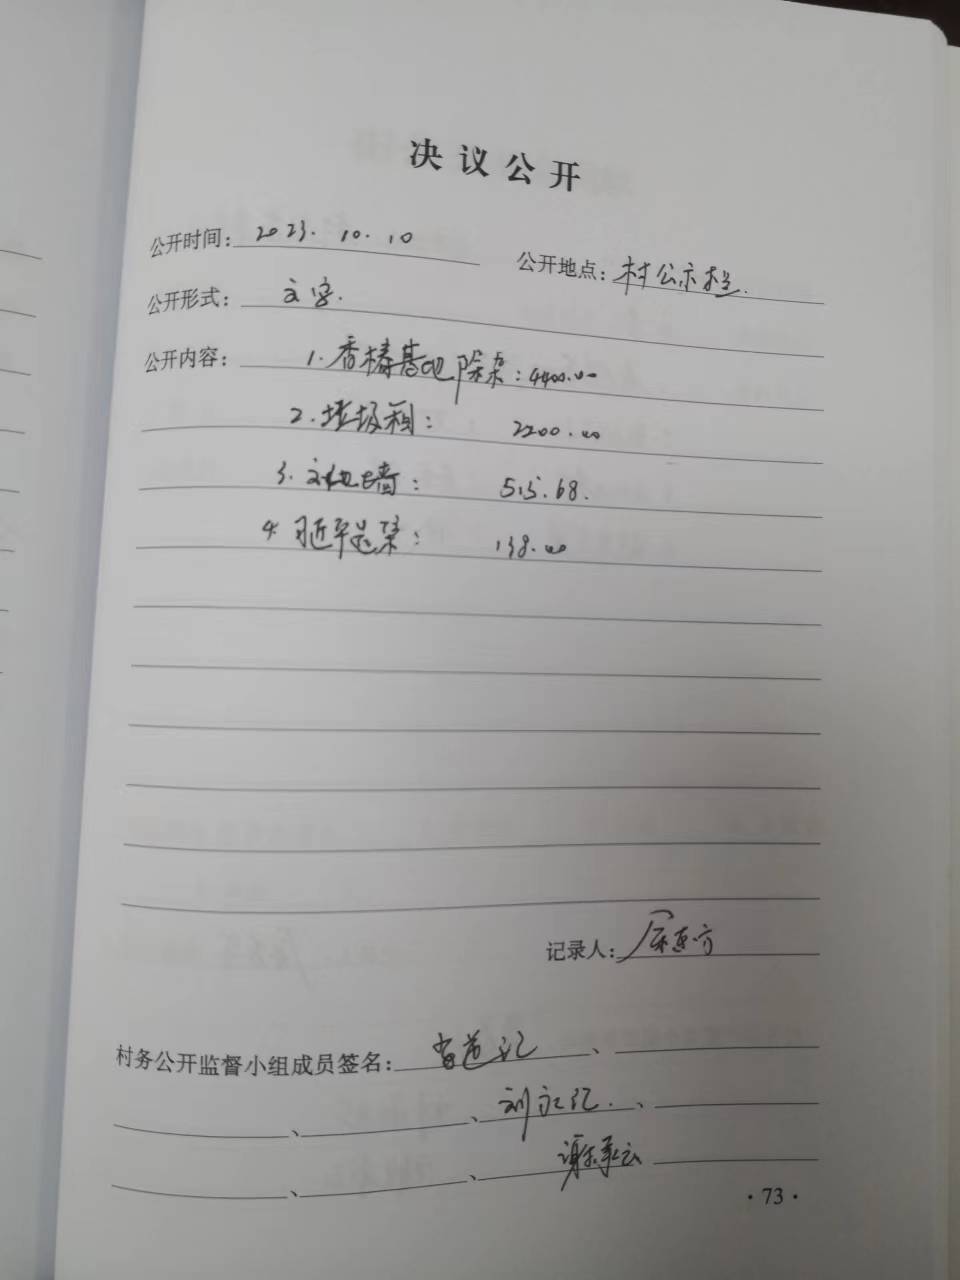 决议公开
公开时间: 2023.10.10 公开地点: 村公示栏.
公开形式: 文字.
公开内容: 1.香椿基地除草: 4400.00
2.垃圾利: 2200.00
3.文化墙: 515.68.
4.习近平: 138.00
记录人:
村务公开监督小组成员签名: 、
、 、 刘永记. 、
、 、 谢承云
·73·